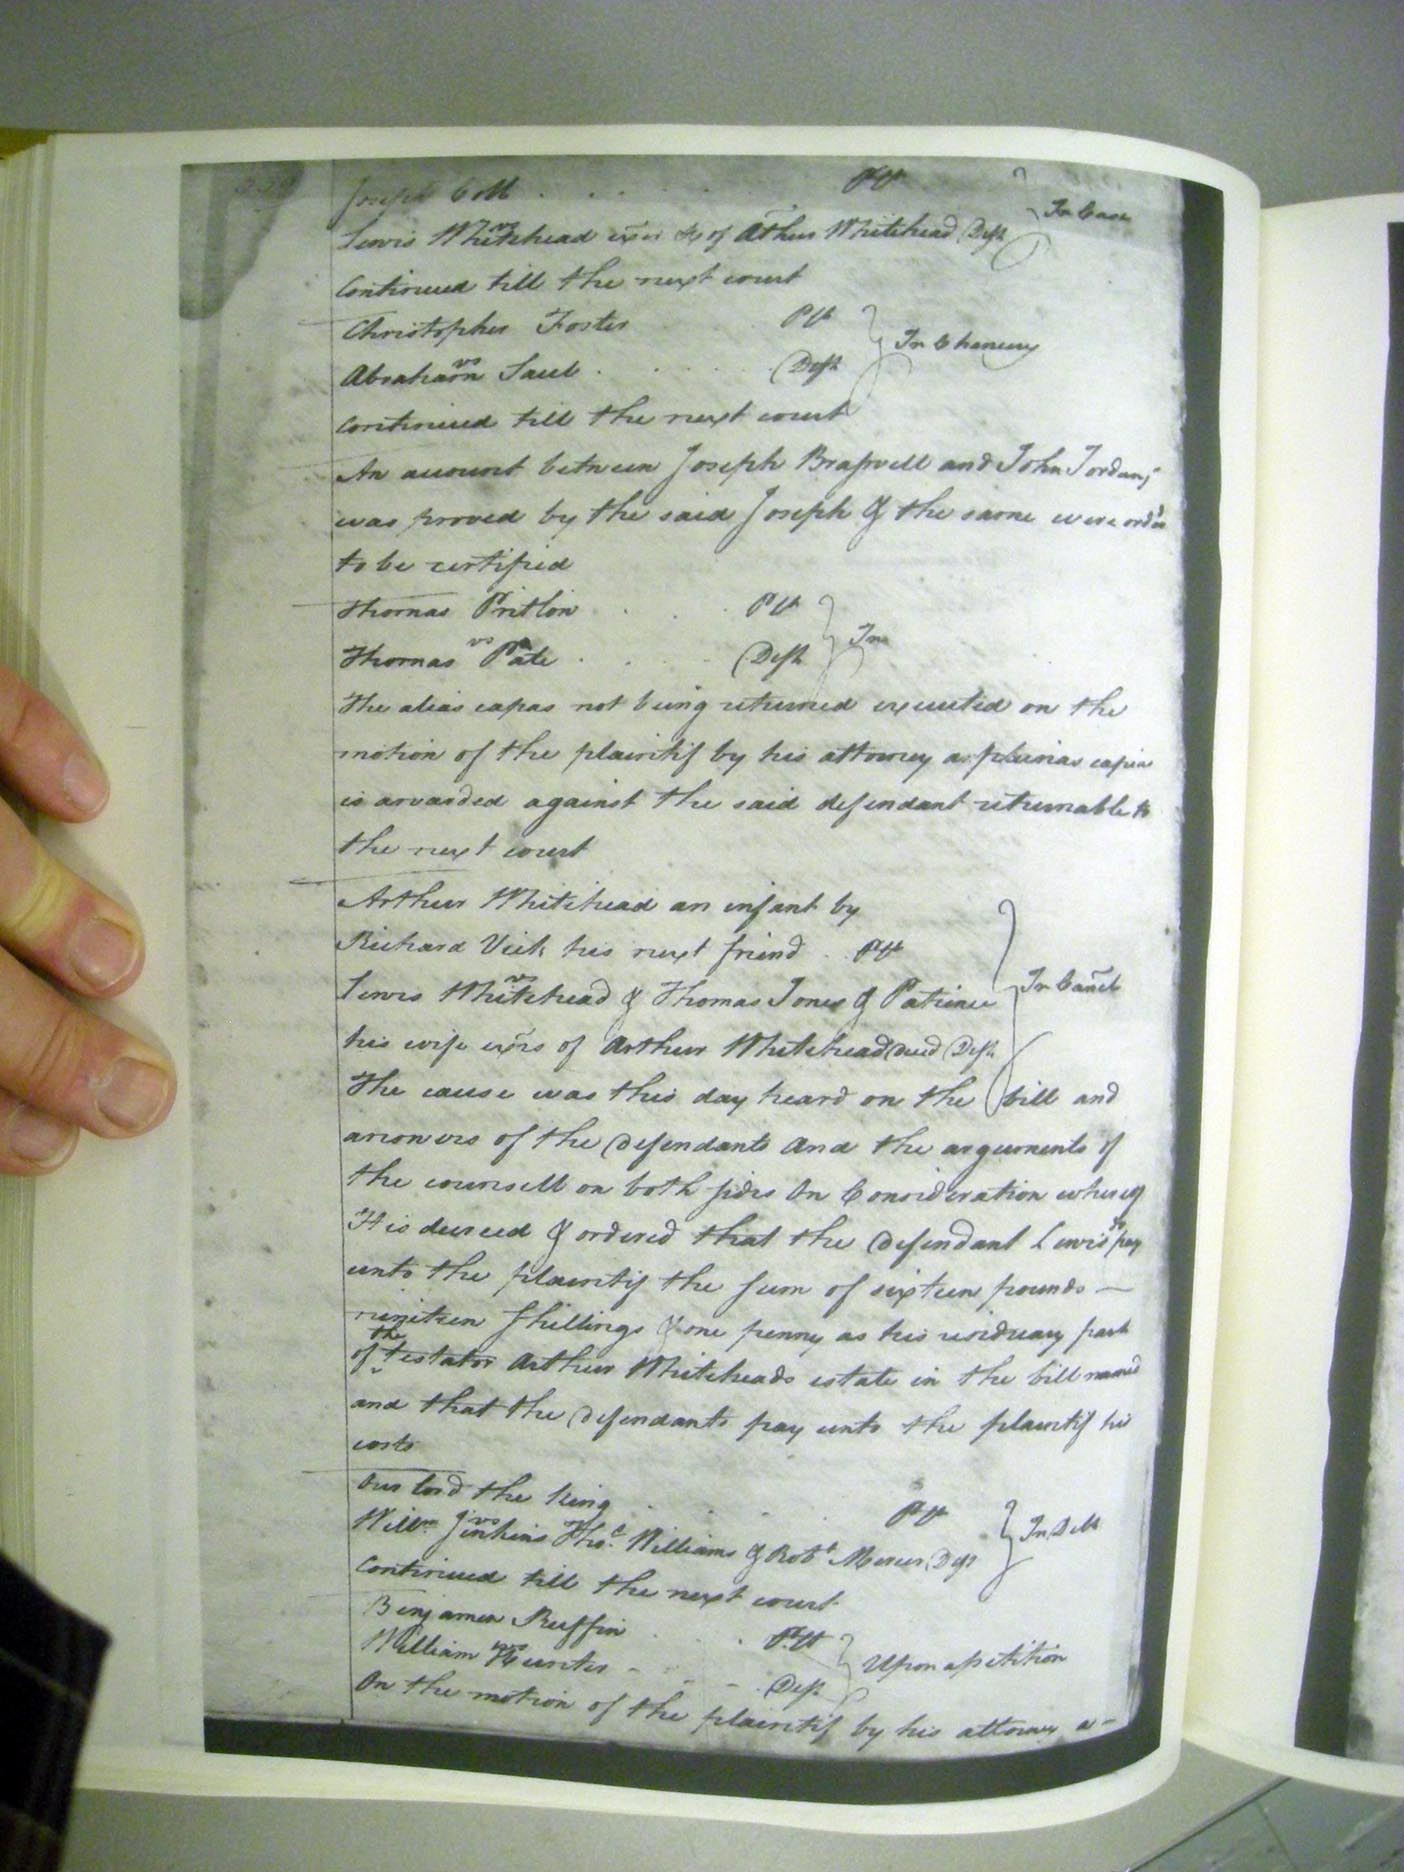 Joseph Cobb Plt
vs In Case
Lewis Whitehead exr &c of Arthur Whitehead Deft
Continued till the next court
Christopher Foster Plt
vs In Chancery
Abraham Saul Deft
Continued till the next court
An account between Joseph Braswell and John Jordan
was proved by the said Joseph & the same were ordd
to be certified
Thomas Pritlow Plt
vs In
Thomas Pate Deft
The alias capas not being returned executed on the
motion of the plaintif by his attorney a plurias capias
is awarded against the said defendant returnable to
the next court
Arthur Whitehead an infant by
Richard Vick his next friend Plt
vs In Cancl
Lewis Whitehead & Thomas Jones & Patience
his wife exrs of Arthur Whitehead decd Defts
The cause was this day heard on the bill and
answers of the Defendants and the arguments of
the counsell on both sides On Consideration whereof
It is decreed & ordered that the Defendant Lewis do pay
unto the plaintif the sum of sixteen pounds —
nineteen shillings & one penny as his residuary part
of the testator Arthur Whiteheads estate in the bill named
and that the Defendants pay unto the plaintif his
costs
Our lord the King Plt
vs In Debt
Willm Jenkins Thos Williams & Robt Mercer Defts
Continued till the next court
Benjamen Ruffin Plt
vs Upon a petition
William Hunter Deft
On the motion of the plaintif by his attorney a-